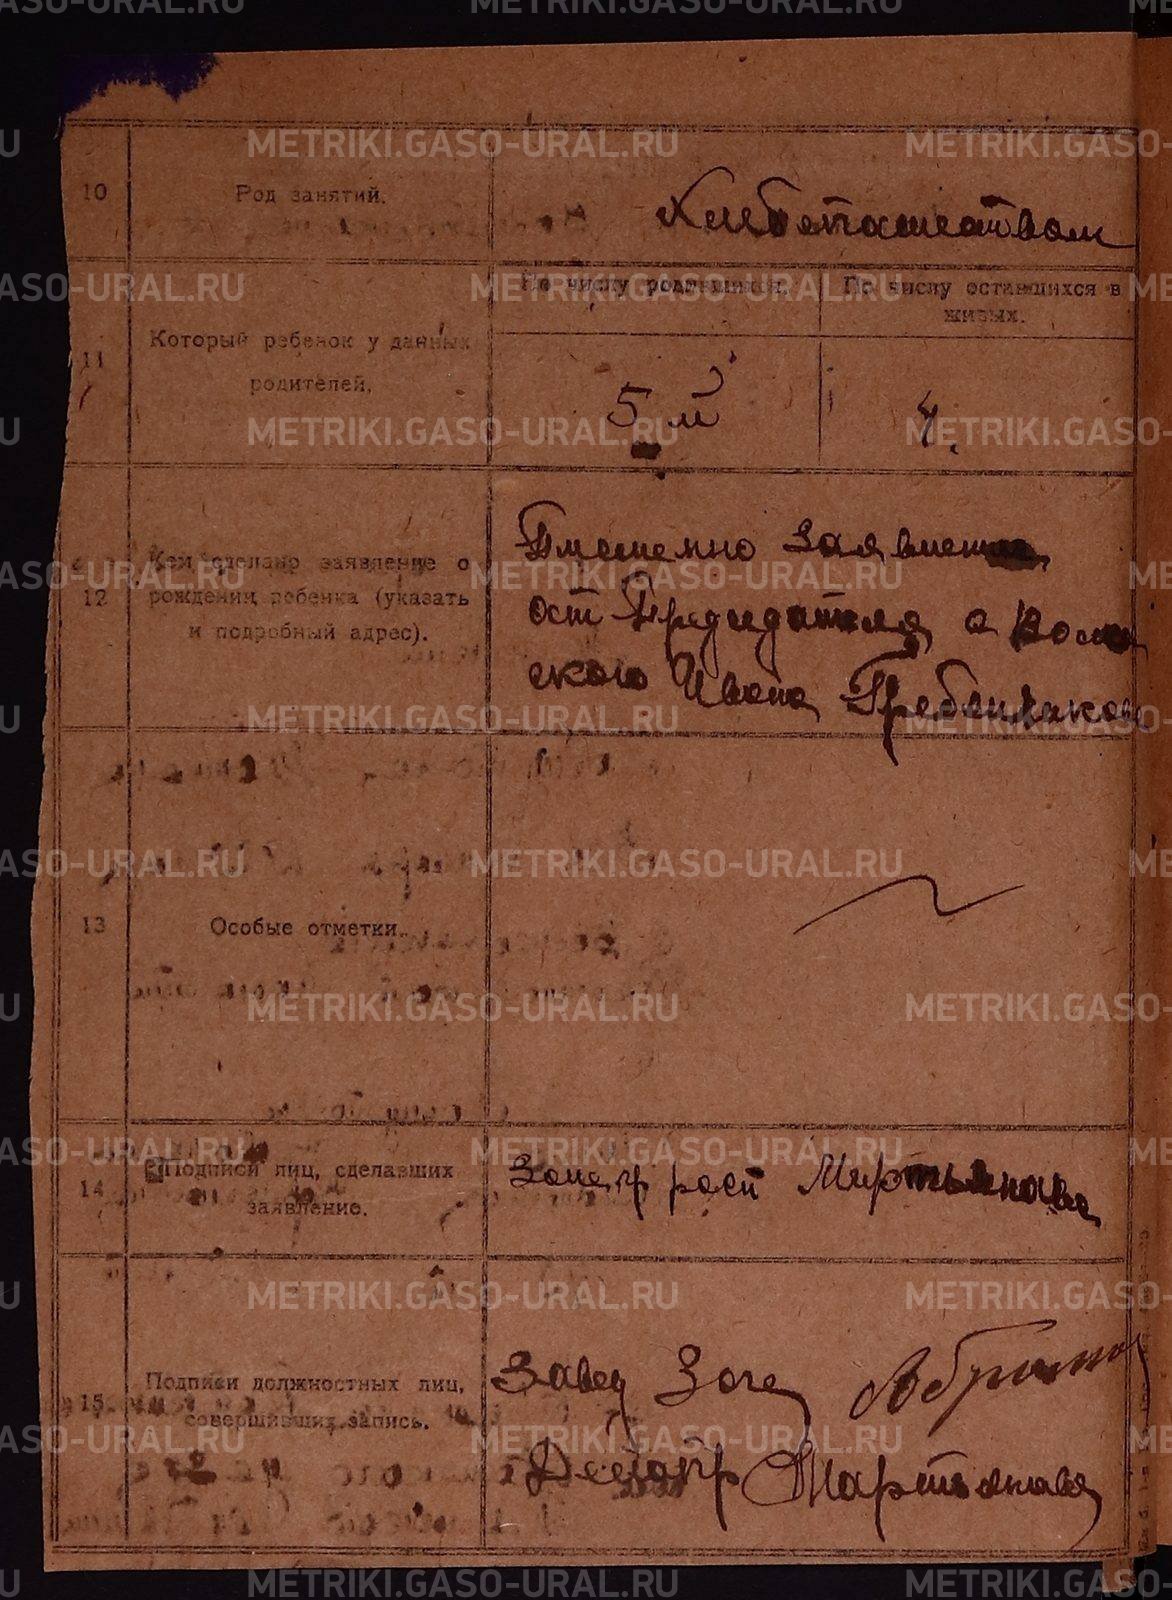 METRIKI.GASO-URAL.RU
10
Род занятий.
Хлебопашеством
11
Который ребенок у данных
родителей.
По числу родившихся.
По числу оставшихся в
живых.
5 й
4.
12
Кем сделано заявление о
рождении ребенка (указать
и подробный адрес).
ост Председателя
ского Ивана Гребенщиков
13
Особые отметки.
14
Подписи лиц, сделавших
заявление.
рост Мартьянова
15
Подписи должностных лиц,
совершивших запись.
Завед Загс
Делопр Мартьянова